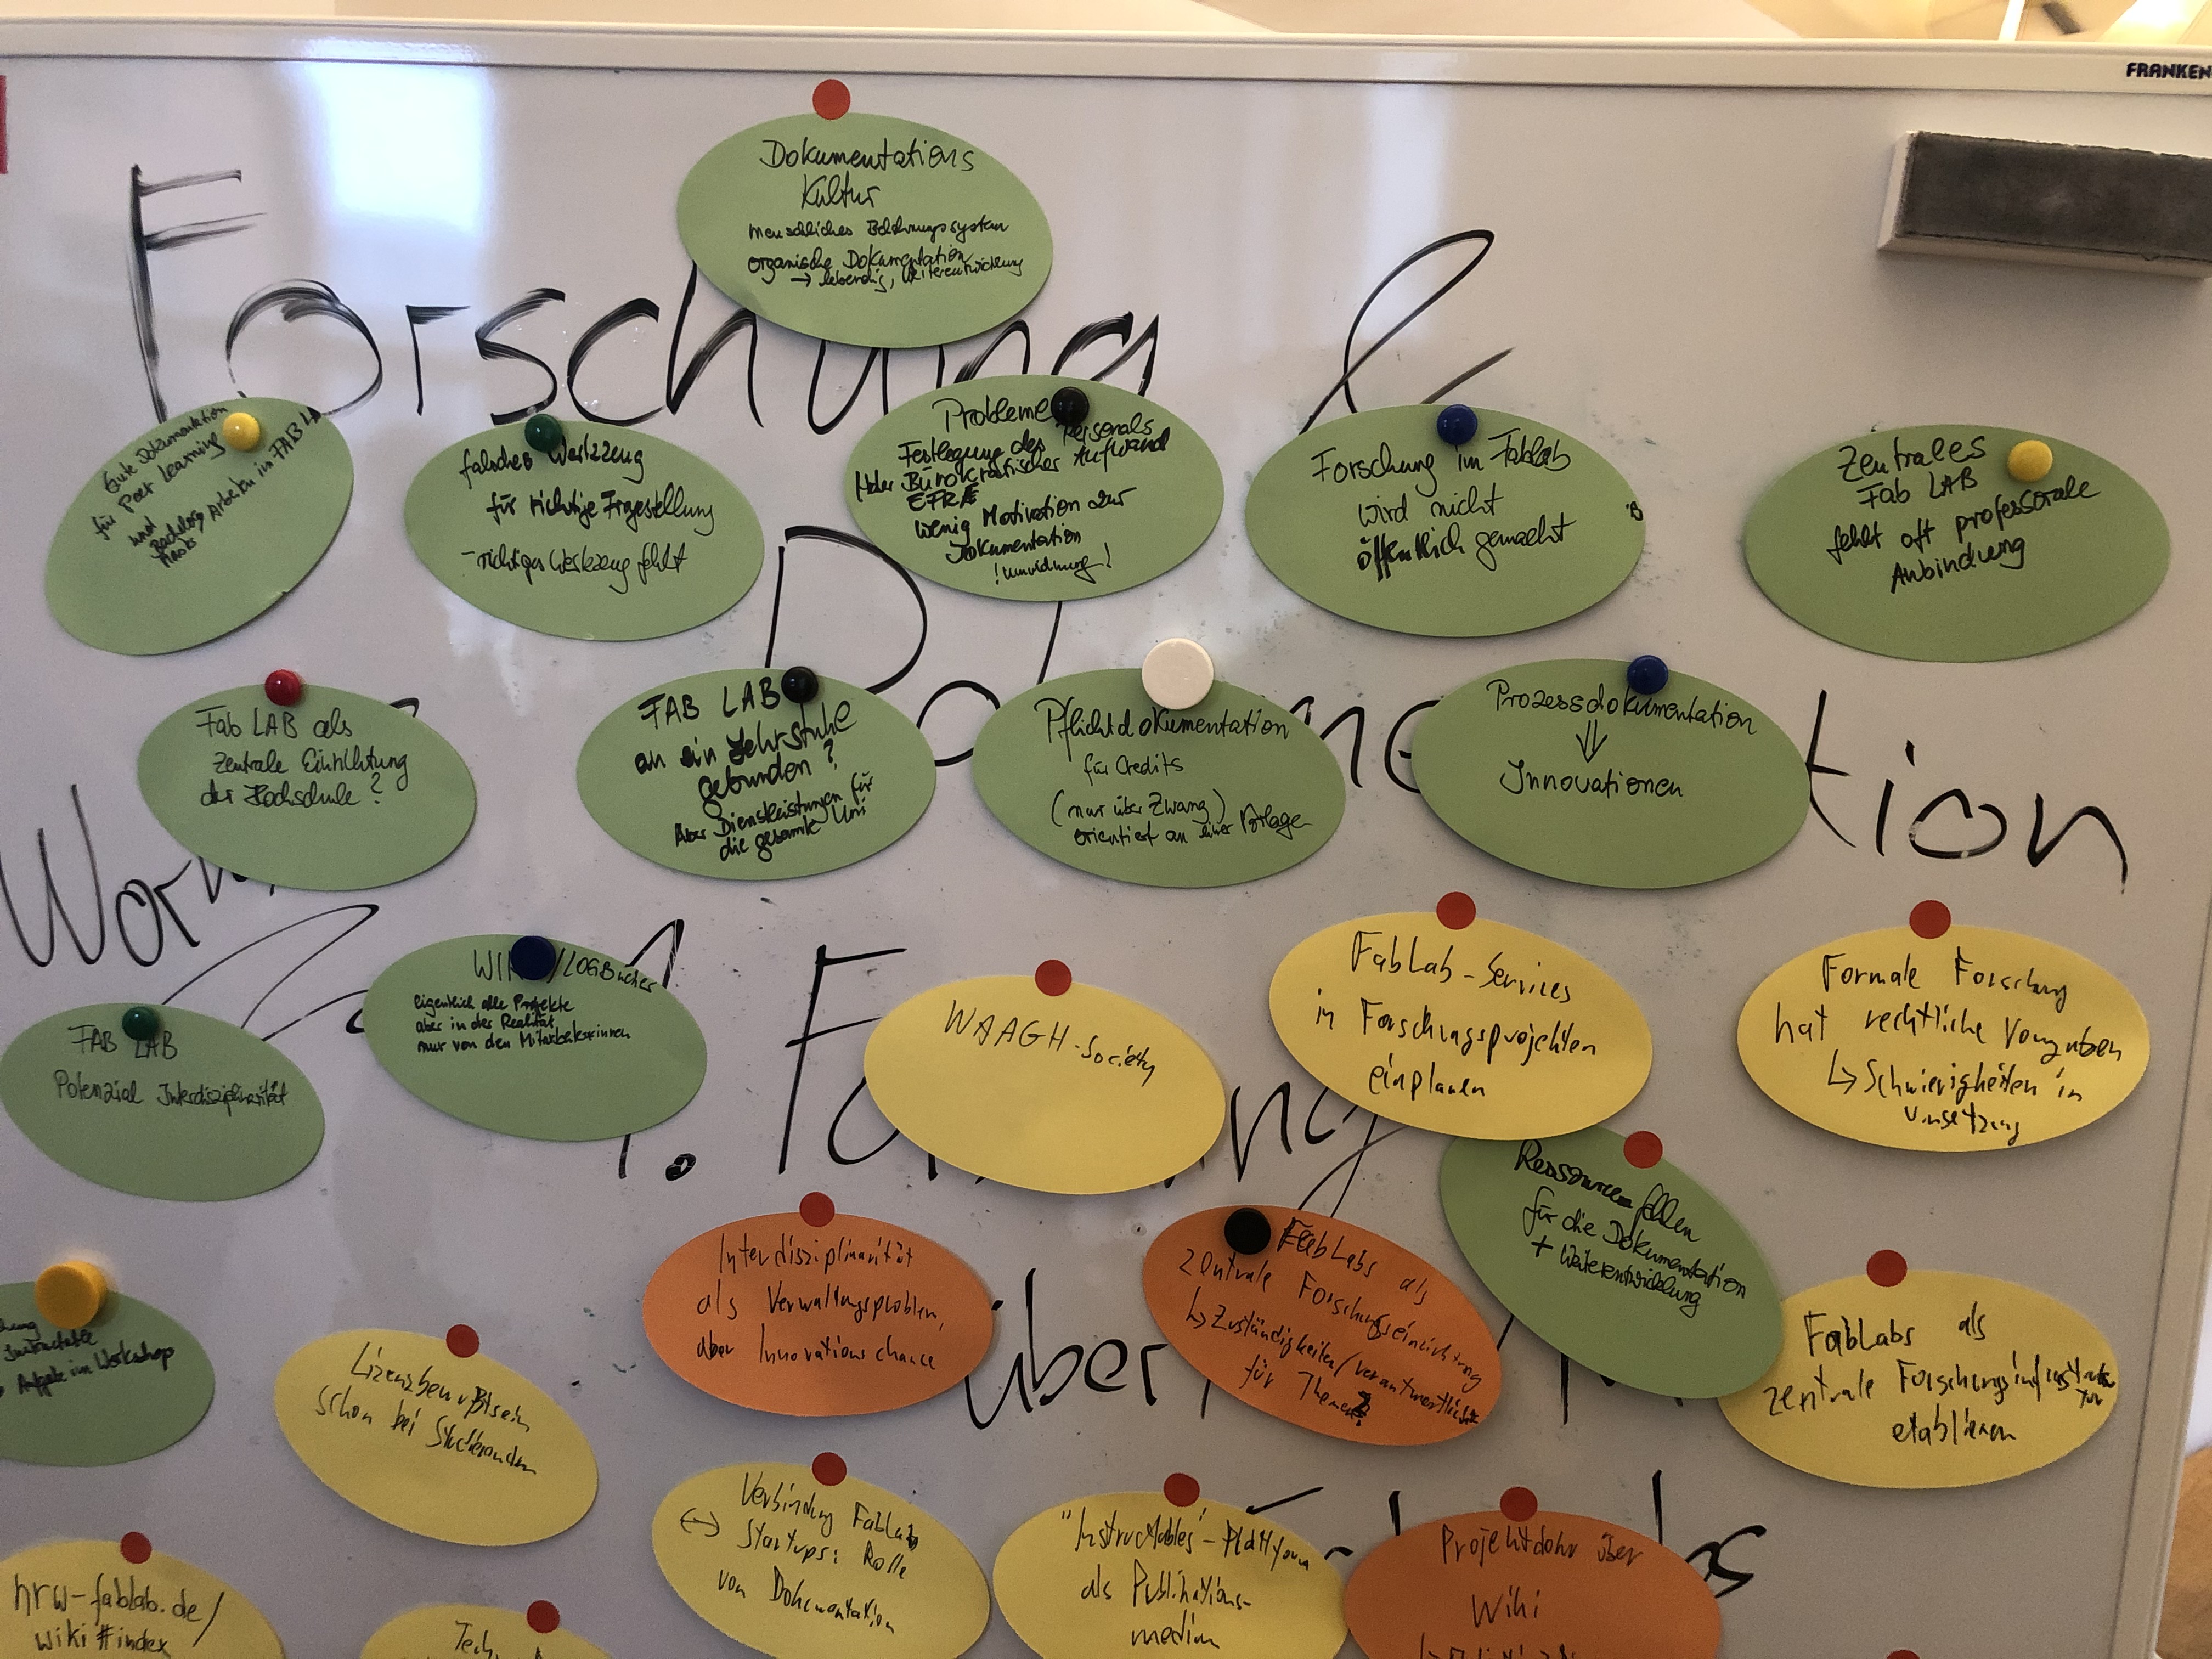 FRANKEN
Dokumentations
Kultur
menschliches Belohnungssystem
organische Dokumentation
→ lebendig, Weiterentwicklung
Forschung &
Gute Dokumentation
für Peer Learning
und
Bachelor Arbeiten im FAB LAB
falsches Werkzeug
für richtige Fragestellung
- richtiges Werkzeug fehlt
Probleme
Festlegung des Personals
Hoher Bürokratischer Aufwand
EFRE
wenig Motivation zur
Dokumentation
! Umwidmung !
Forschung im Fablab
wird nicht
öffentlich gemacht
Zentrales
Fab LAB
fehlt oft professorale
Anbindung
Fab LAB als
zentrale Einrichtung
der Hochschule?
FAB LAB
an ein Lehrstuhl
gebunden?
Aber Dienstleistungen für
die gesamte Uni
Pflichtdokumentation
für Credits
(nur über Zwang)
orientiert an einer Vorlage
Prozessdokumentation
⇓
Innovationen
tion
Work
FAB LAB
Potenzial Interdisziplinarität
/LOGBücher
eigentlich alle Projekte
aber in der Realität
nur von den Mitarbeiter*innen
1. F
WAAGH-Society
FabLab-Services
in Forschungsprojekten
einplanen
Formale Forschung
hat rechtliche Vorgaben
↳ Schwierigkeiten in
Umsetzung
Ressourcen fehlen
für die Dokumentation
+ Weiterentwicklung
Interdisziplinarität
als Verwaltungsproblem,
aber Innovationschance
FabLabs als
zentrale Forschungseinrichtung
↳ Zuständigkeiten/verantwortlich
für Themen?
über
FabLabs als
zentrale Forschungsinfrastruktur
etablieren
Aufgabe im Workshop
Lizenzbewußtsein
schon bei Studierenden
Verbindung FabLab
↔ Startups: Rolle
von Dokumentation
"Instructables"-Plattform
als Publikations-
medium
Projektdoku über
Wiki
nrw-fablab.de/
wiki#index
Tech